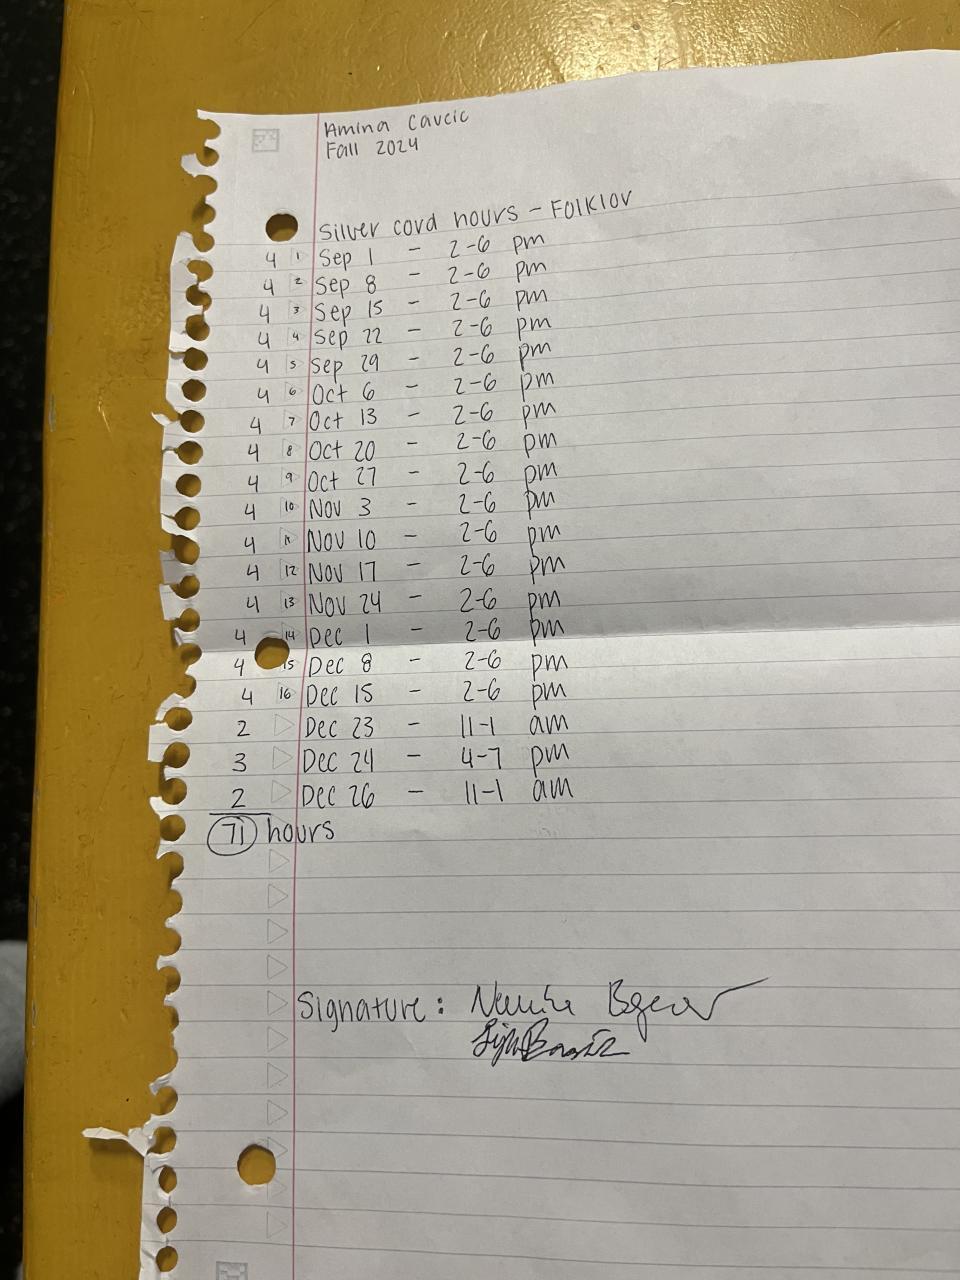 Amina Cavcic
Fall 2024
Silver cord hours - Folklor
4 1 Sep 1 - 2-6 pm
4 2 Sep 8 - 2-6 pm
4 3 Sep 15 - 2-6 pm
4 4 Sep 22 - 2-6 pm
4 5 Sep 29 - 2-6 pm
4 6 Oct 6 - 2-6 pm
4 7 Oct 13 - 2-6 pm
4 8 Oct 20 - 2-6 pm
4 9 Oct 27 - 2-6 pm
4 10 Nov 3 - 2-6 pm
4 11 Nov 10 - 2-6 pm
4 12 Nov 17 - 2-6 pm
4 13 Nov 24 - 2-6 pm
4 14 Dec 1 - 2-6 pm
4 15 Dec 8 - 2-6 pm
4 16 Dec 15 - 2-6 pm
2 Dec 23 - 11-1 am
3 Dec 24 - 4-7 pm
2 Dec 26 - 11-1 am
71 hours
Signature: